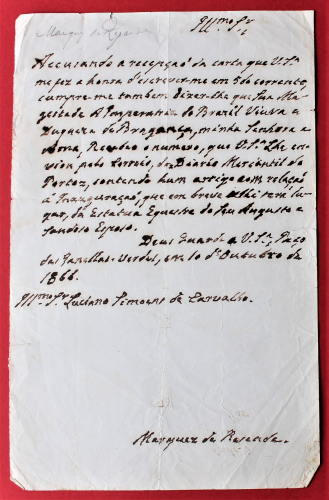 Marquez de Rezende
Illmo Sr.
Accusando a recepçaõ da carta que V. Sa.
me faz a honra d'escrever-me em 5 do corrente,
cumpre-me tambem dizer-lhe que Sua Ma-
gestade A Imperatriz do Brazil Viuva e
Duqueza de Bragança, minha Senhora e
Ama, Recebeo o numero, que V. Sa. Lhe en-
viou pelo Correio, do Diario Mercantil do
Porto, contendo hum artigo com relaçaõ
á Inauguraçaõ, que em breve ahi terá lu-
gar, da Estatua Equestre do Seu Augusto e
Saudoso Esposo.
Deus Guarde a V. Sa. Paço
das Janellas-Verdes, em 10 d'Outubro de
1866.
Illmo Sr. Luciano Simoens de Carvalho.
Marquez de Resende.